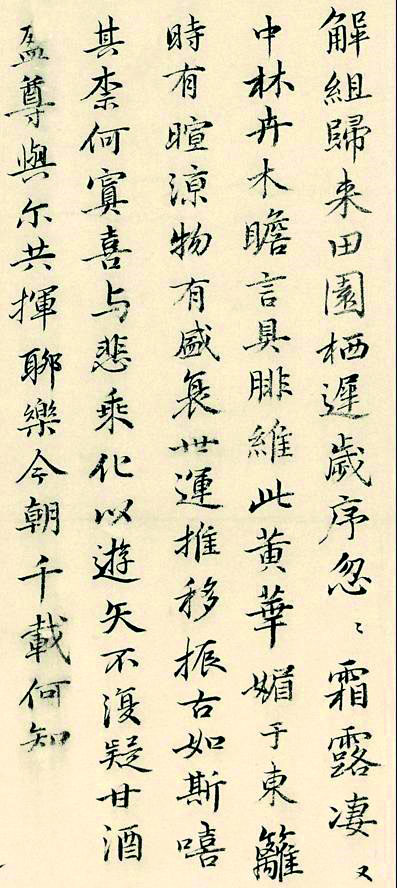 解組歸来田園栖遲歲序忽〻霜露凄又
中林卉木瞻言具腓維此黄華媚于東籬
時有暄涼物有盛衰世運推移振古如斯嘻
其柰何寞喜与悲乘化以遊矢不復疑甘酒
盈尊與尔共揮聊樂今朝千載何知